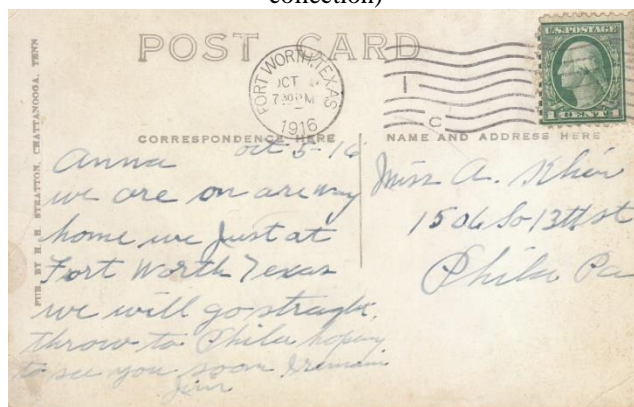 collection)
POST CARD
FORT WORTH, TEXAS
OCT
7 30 PM
1916
U.S. POSTAGE
1 CENT 1
1
C
PUB. BY H. H. STRATTON, CHATTANOOGA, TENN
CORRESPONDENCE HERE
NAME AND ADDRESS HERE
Anna Oct 5-16
we are on are way
home we Just at
Fort Worth Texas
we will go straght
throw to Phila hoping
to see you soon I remain
Jim
Miss A.
1506 So 13th st
Phila Pa